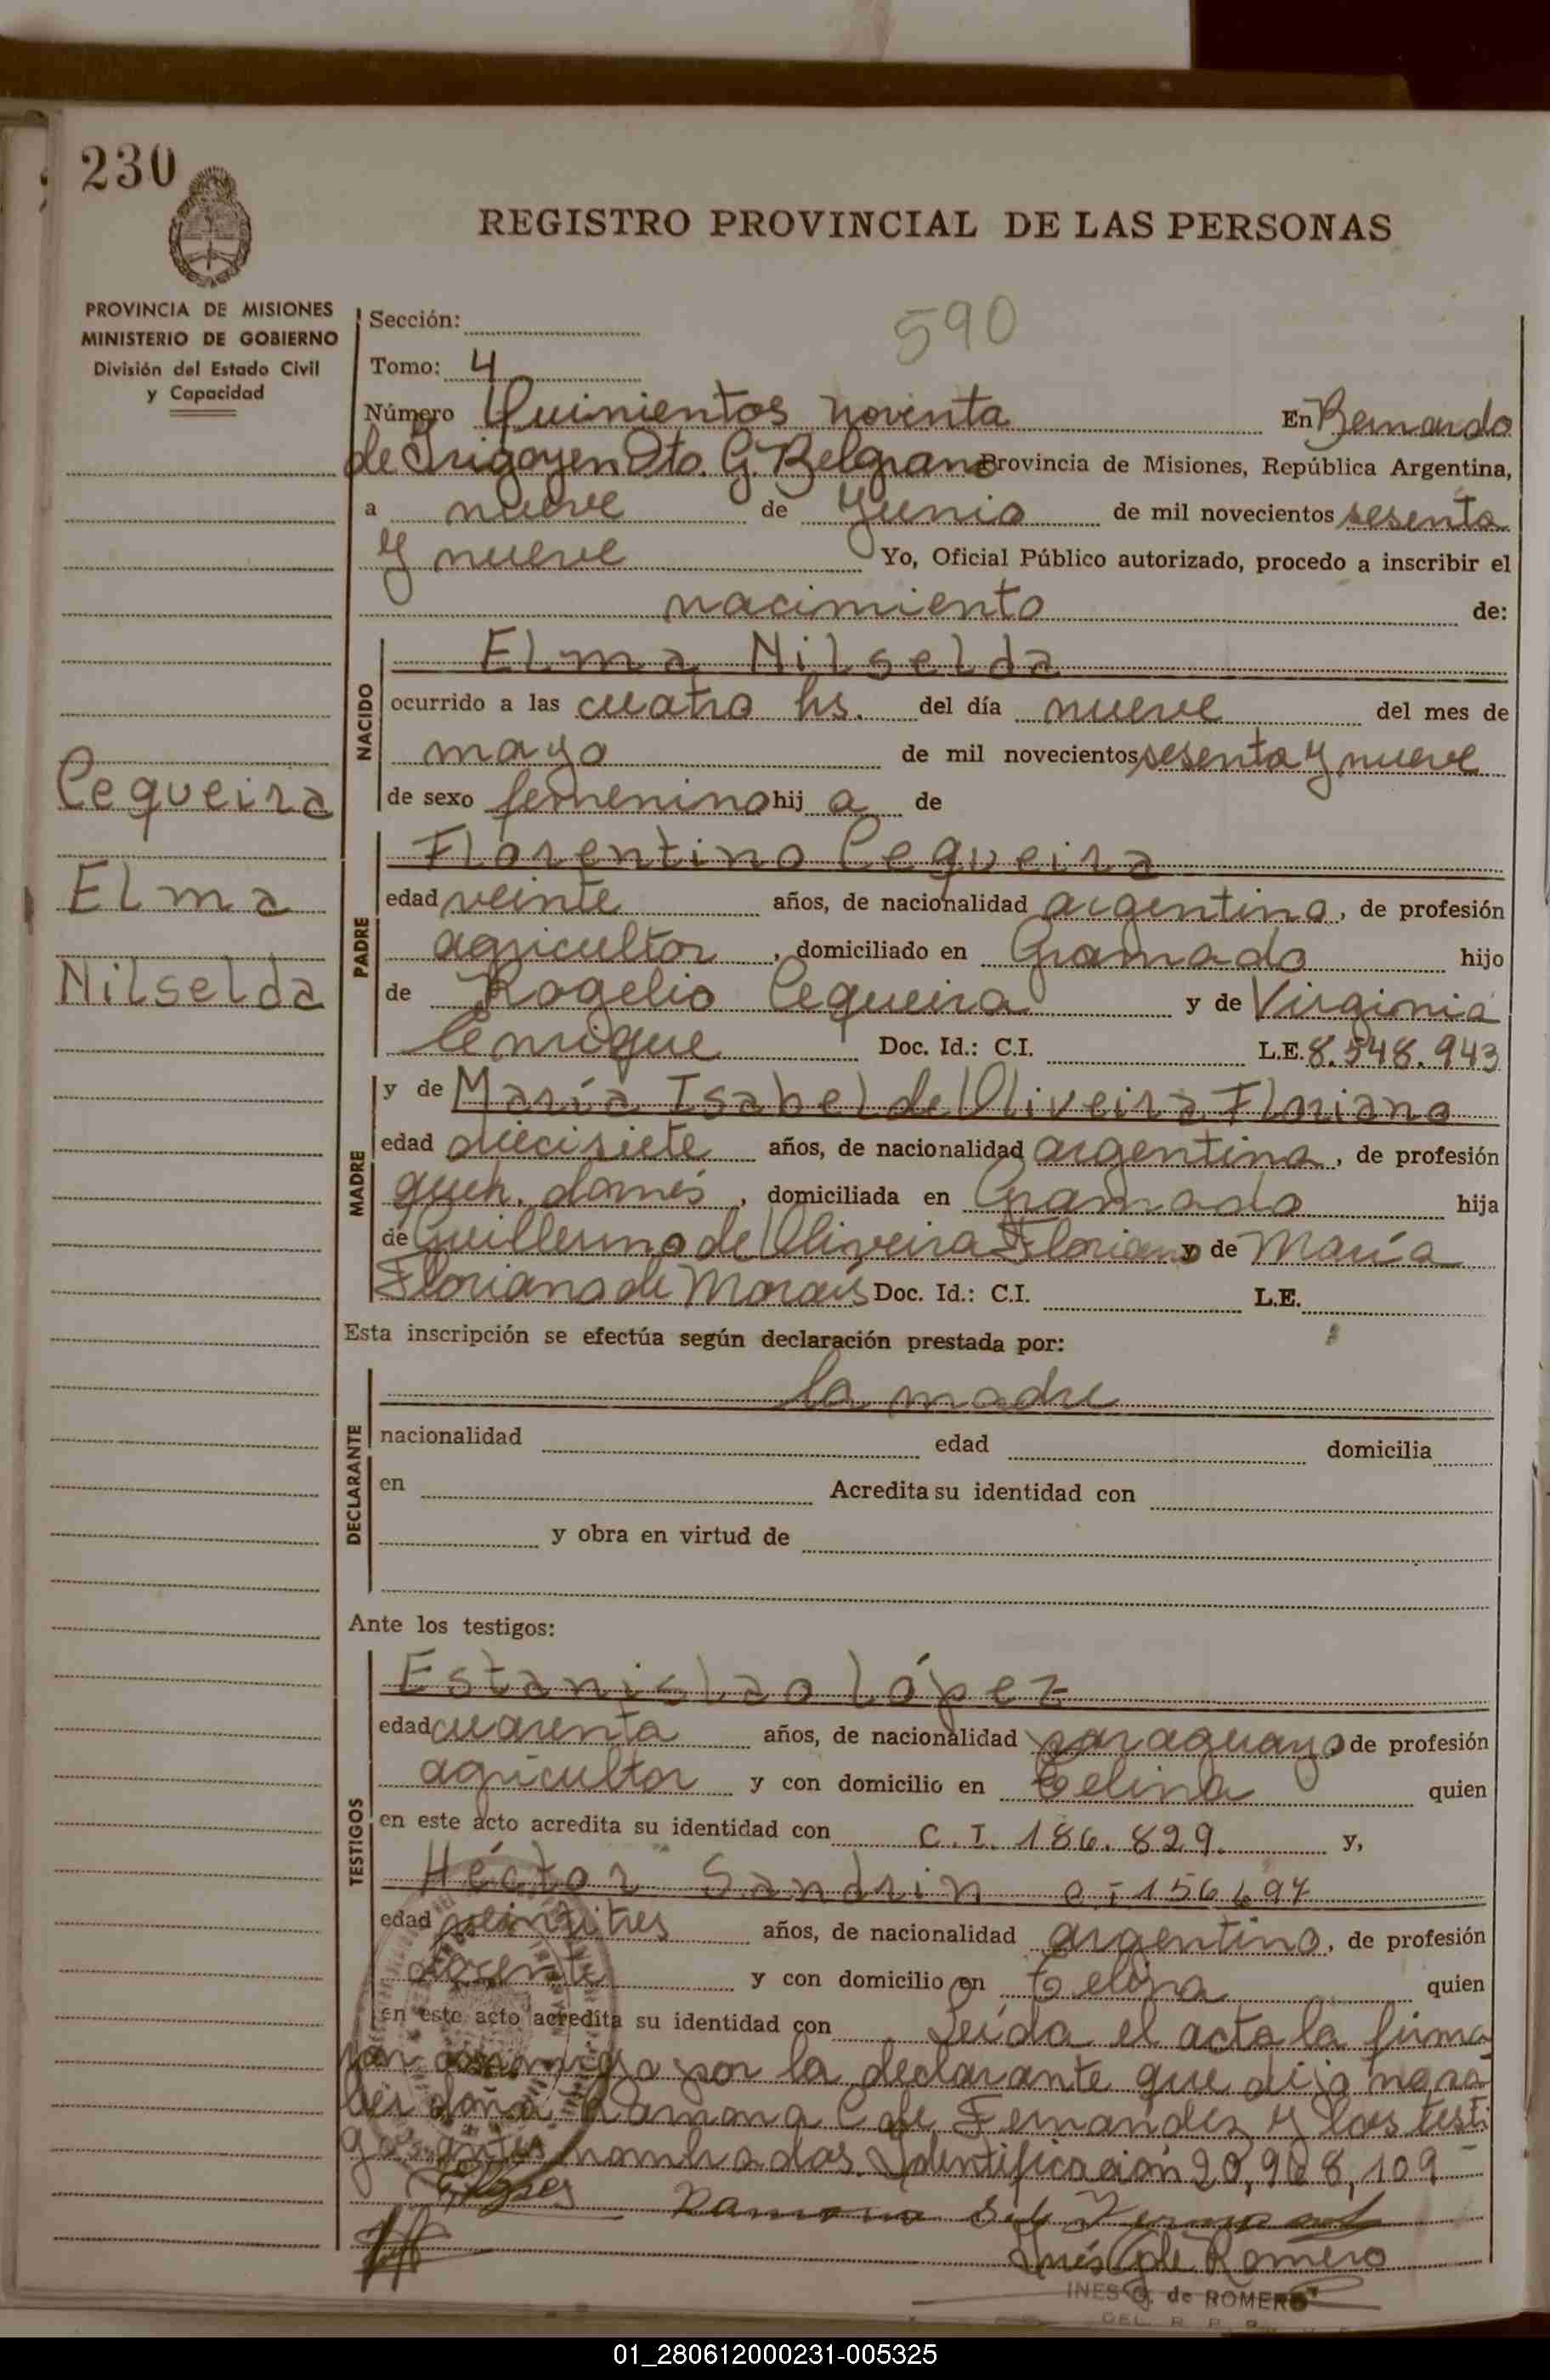 230
REGISTRO PROVINCIAL DE LAS PERSONAS
PROVINCIA DE MISIONES
MINISTERIO DE GOBIERNO
División del Estado Civil
y Capacidad
Sección:
590
Tomo: 4
Número Quinientos noventa En Bernardo
de Irigoyen Dto. G. Belgrano Provincia de Misiones, República Argentina,
a nueve de Junio de mil novecientos sesenta
y nueve Yo, Oficial Público autorizado, procedo a inscribir el
nacimiento de:
NACIDO
Elma Nilselda
ocurrido a las cuatro hs. del día nueve del mes de
mayo de mil novecientos sesenta y nueve
de sexo femenino hij a de
Cequeira
Elma
Nilselda
PADRE
Florentino Cequeira
edad veinte años, de nacionalidad argentina, de profesión
agricultor, domiciliado en Gramado hijo
de Rogelio Cequeira y de Virginia
Doc. Id.: C.I. L.E. 8.548.943
MADRE
y de María Isabel de Oliveira Floriano
edad diecisiete años, de nacionalidad argentina, de profesión
queh. domés, domiciliada en Gramado hija
de Guillermo de Oliveira Floriano y de María
Floriano de Morais Doc. Id.: C.I. L.E.
Esta inscripción se efectúa según declaración prestada por:
DECLARANTE
la madre
nacionalidad edad domicilia
en Acredita su identidad con
y obra en virtud de
Ante los testigos:
TESTIGOS
Estanislao López
edad cuarenta años, de nacionalidad paraguayo de profesión
agricultor y con domicilio en Celina quien
en este acto acredita su identidad con C.I. 186.829. y,
Héctor Sandrin
edad veintitres años, de nacionalidad argentino, de profesión
docente y con domicilio en Celina quien
en este acto acredita su identidad con Leída el acta la firma
por la declarante que dijo no sa
ber doña Ramona C de Fernandez y los testi
gos antes nombrados. Identificación 20,908,109
López Ramona
Inés G de Romero
INES G. de ROMERO
DEL R. P.
01_280612000231-005325